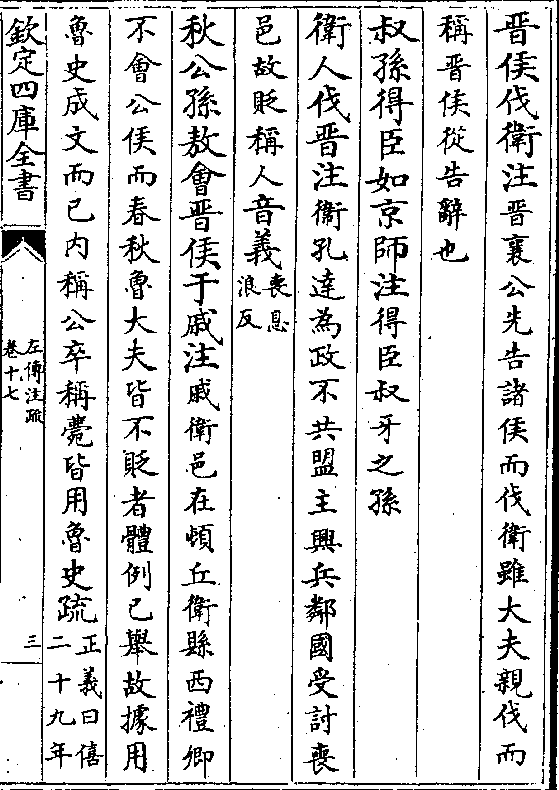 晉侯伐衛注晉襄公先告諸侯而伐衛雖大夫親伐而
稱晉侯從告辭也
叔孫得臣如京師注得臣叔牙之孫
衛人伐晉注衛孔達為政不共盟主興兵鄰國受討喪
邑故貶稱人音義喪息
浪反
秋公孫敖會晉侯于戚注戚衛邑在頓丘衛縣西禮卿
不會公侯而春秋魯大夫皆不貶者體例已舉故據用
魯史成文而已内稱公卒稱薨皆用魯史疏正義曰僖
二十九年
欽定四庫全書
左傳注疏
卷十七
三